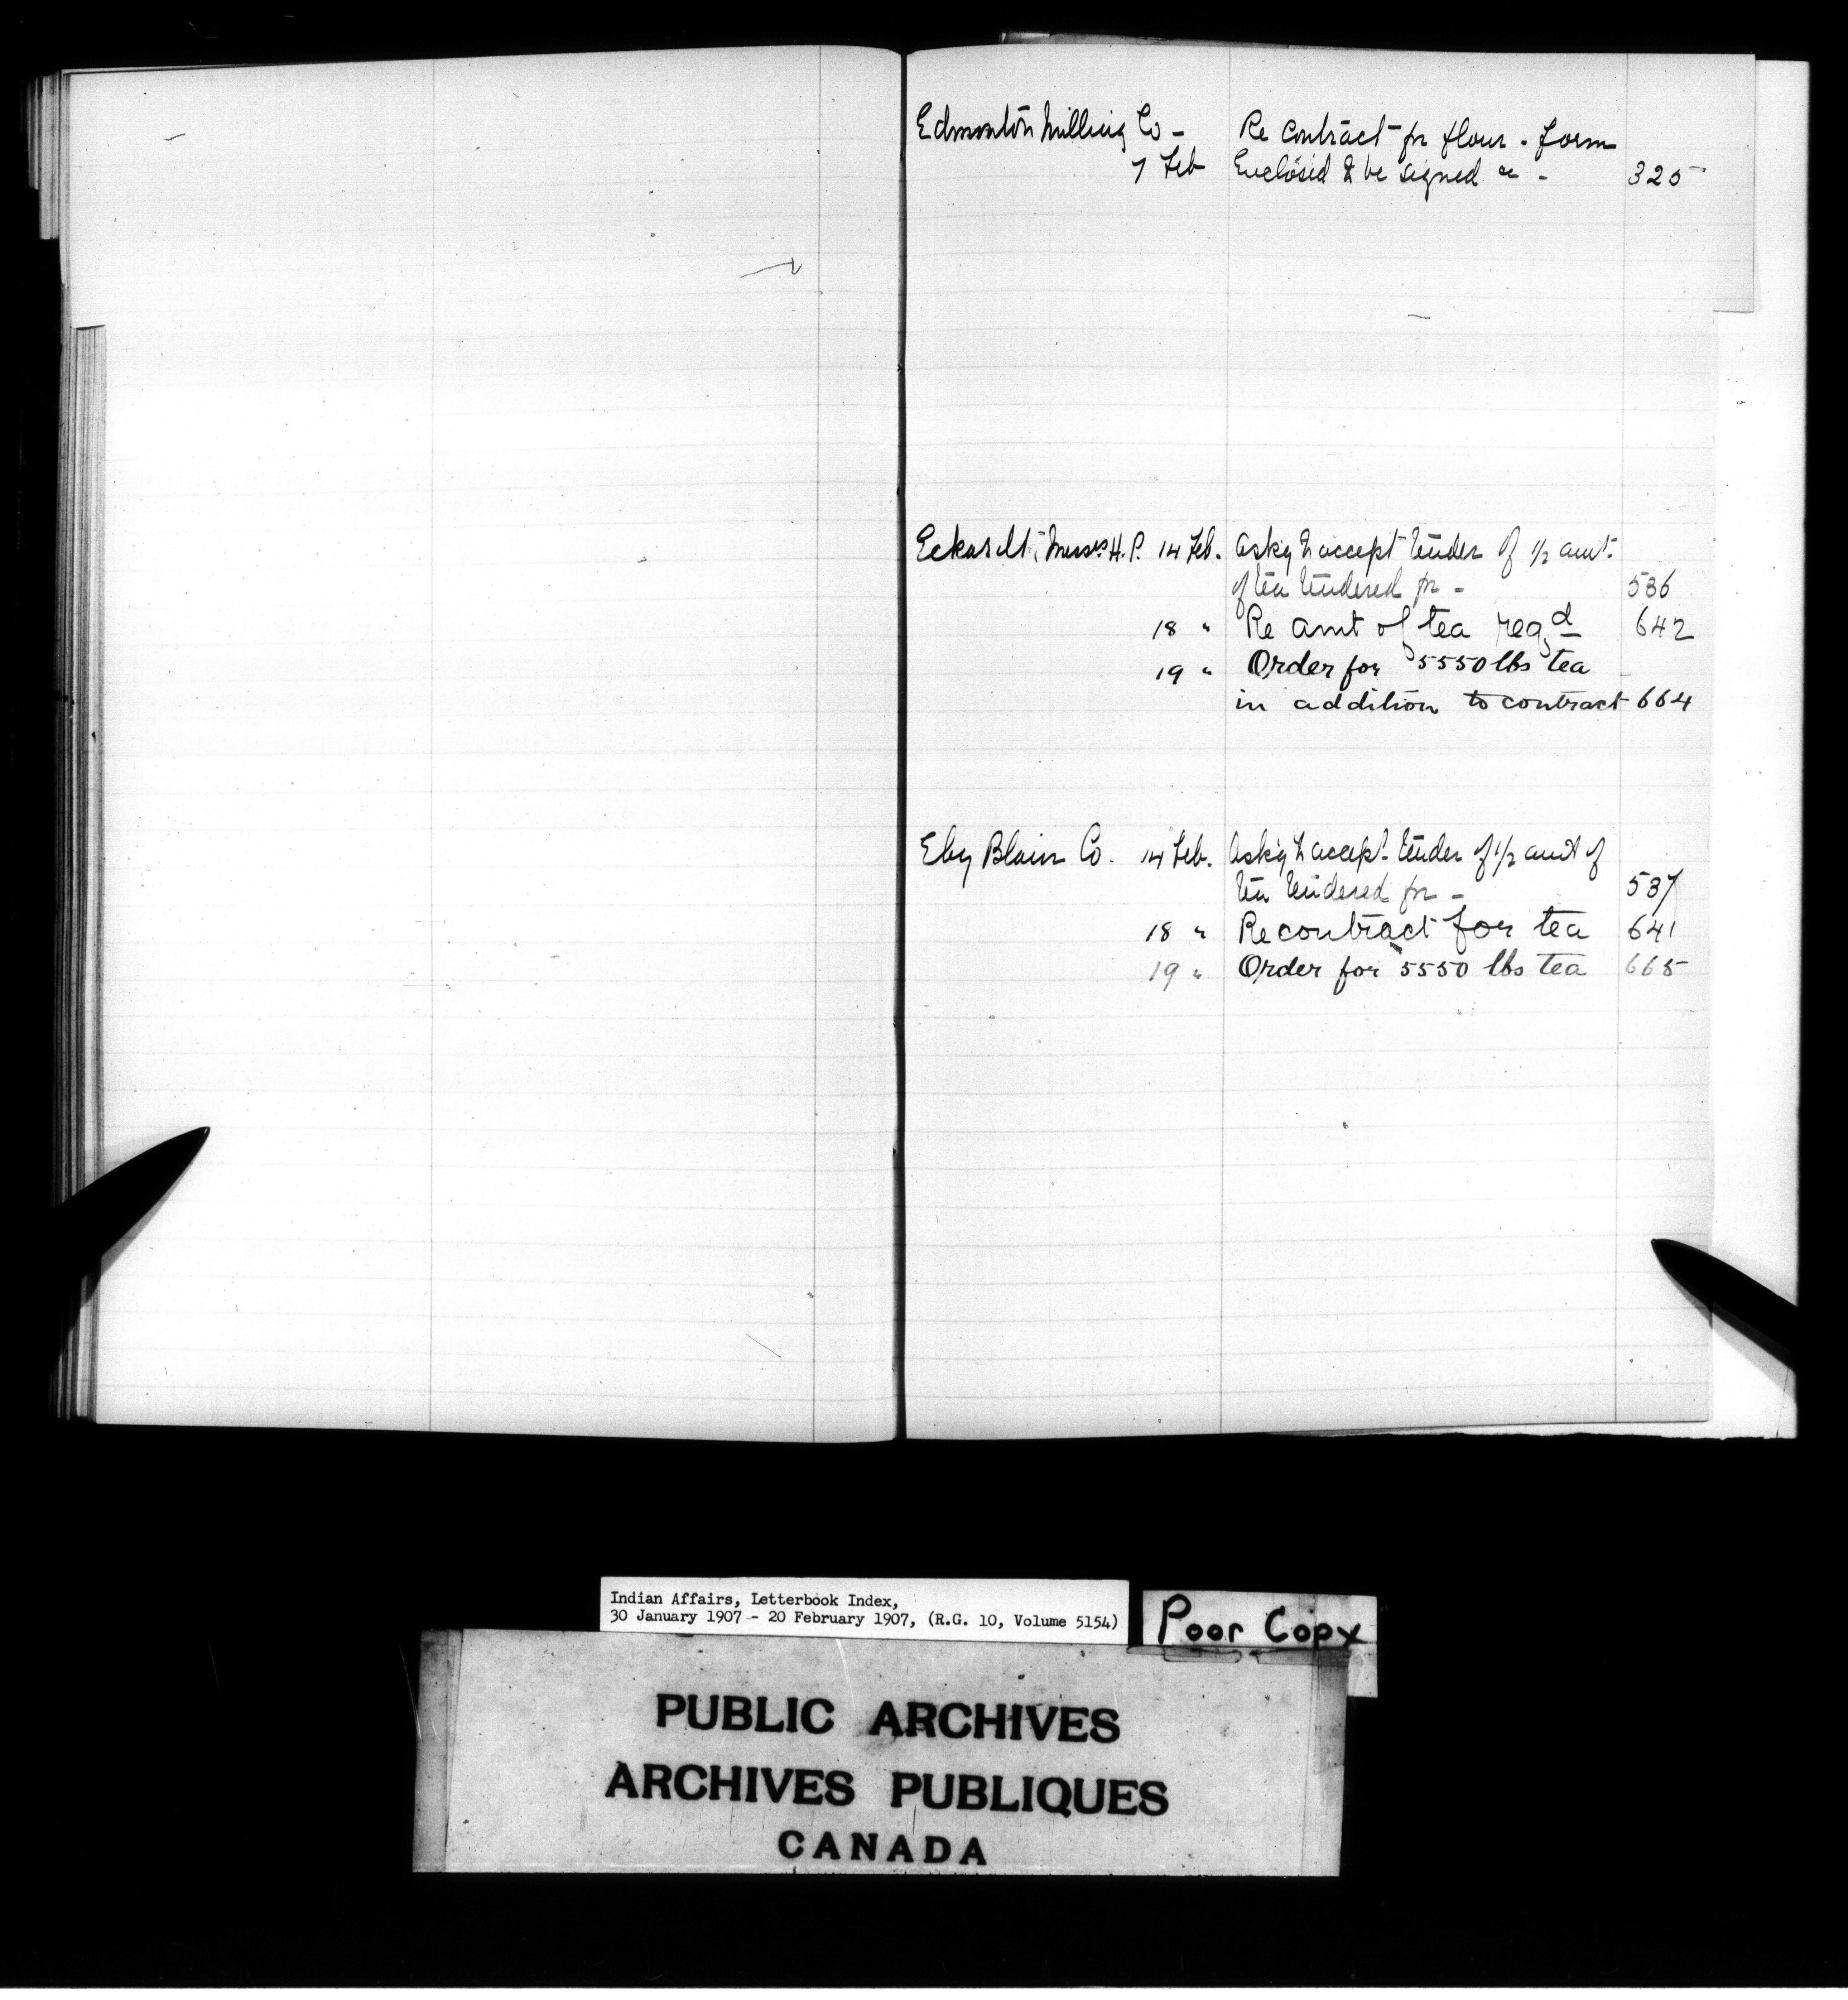 Edmonton Milling Co - Re Contract for flour - form
7 Feb Enclosed to be signed &c - 325
Eckardt, Messrs H. P. 14 Feb. Ask'g to accept tender of 1/2 amt.
of tea tendered for - 536
18 " Re amt of tea reqd 642
19 " Order for 5550 lbs tea
in addition to contract 664
Eby Blain Co. 14 Feb. Ask'g to accept tender of 1/2 amt of
tea tendered for - 537
18 " Re contract for tea 641
19 " Order for 5550 lbs tea 665
Indian Affairs, Letterbook Index,
30 January 1907 - 20 February 1907, (R.G. 10, Volume 5154)
Poor Copy
PUBLIC ARCHIVES
ARCHIVES PUBLIQUES
CANADA